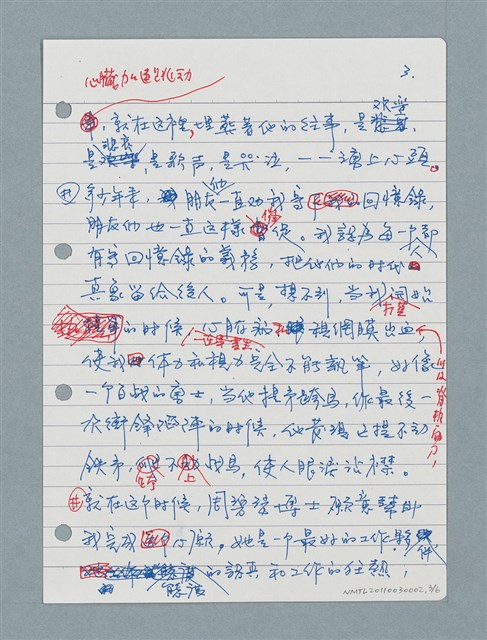 心臟加速跳动
3.
就在这裡,埋葬着他的往事,是欢樂
是悲哀,是歌声,是哭泣,一一湧上心頭。
多少年来,朋友他一直劝我寫下回憶錄,
朋友他也一直这樣催促。我認为每一个人都
有寫回憶錄的義務,把他他的时代
真象留給後人。可是,想不到,当我開始
的时候,心脏病和視網膜出血,
一連串發生
使我体力和視力完全不能執筆,好像
以及脊椎
一个百战的勇士,当他提矛跨馬,作最後一
次衝鋒陷陣的时候,他發現已提不动
鉄矛,跨不上战馬,使人眼淚沾襟。
就在这个时候,周碧瑟博士願意幫助
我完成这个心願。她是一个最好的工作夥伴
的認真和工作的狂熱,
NMTL20110030002, 3/6